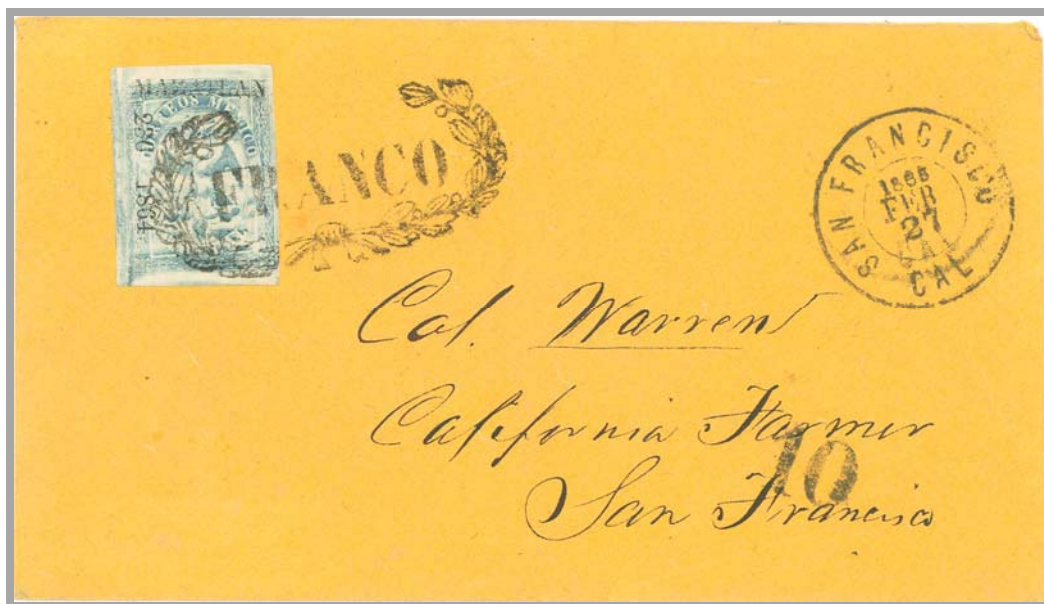 MAZATLAN
230 1864
FRANCO
SAN FRANCISCO
1865
FEB
27
CAL
Col. Warren
California Farmer
10
San Francisco